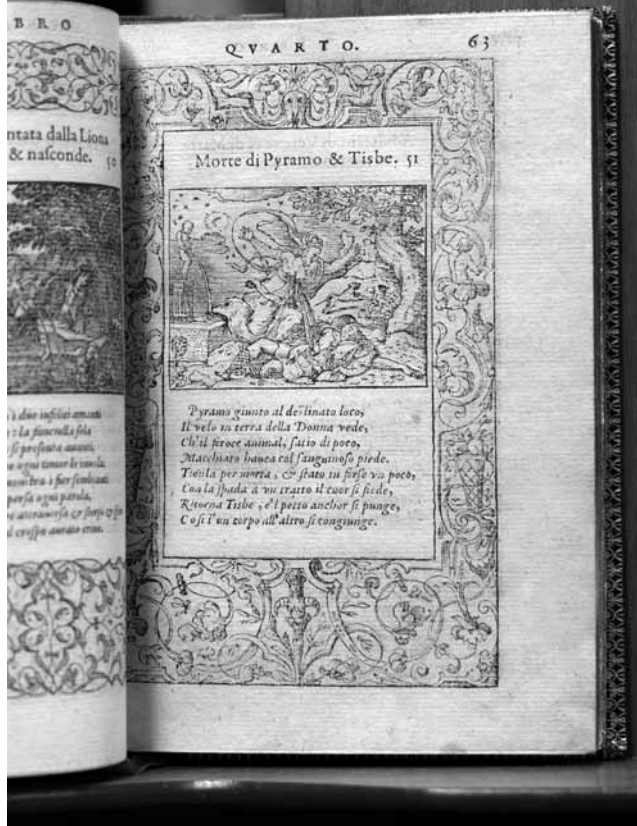 BRO
ntata dalla Liona
& naſconde. 50
amanti
la fanciulla ſola
ſi preſenta
ogni timor
ogni parola,
il creſpo aurato crine.
QVARTO. 63
Morte di Pyramo & Tisbe. 51
Pyramo giunto al deſtinato loco,
Il velo in terra della Donna vede,
Ch'il feroce animal, ſatio di poco,
Macchiato hauea col ſanguinoſo piede.
Tienla per morta, & ſtato in forſe vn poco,
Con la ſpada a vn tratto il cuor ſi fiede,
Ritorna Tisbe, e'l petto anchor ſi punge,
Coſi l'un corpo all'altro ſi congiunge.